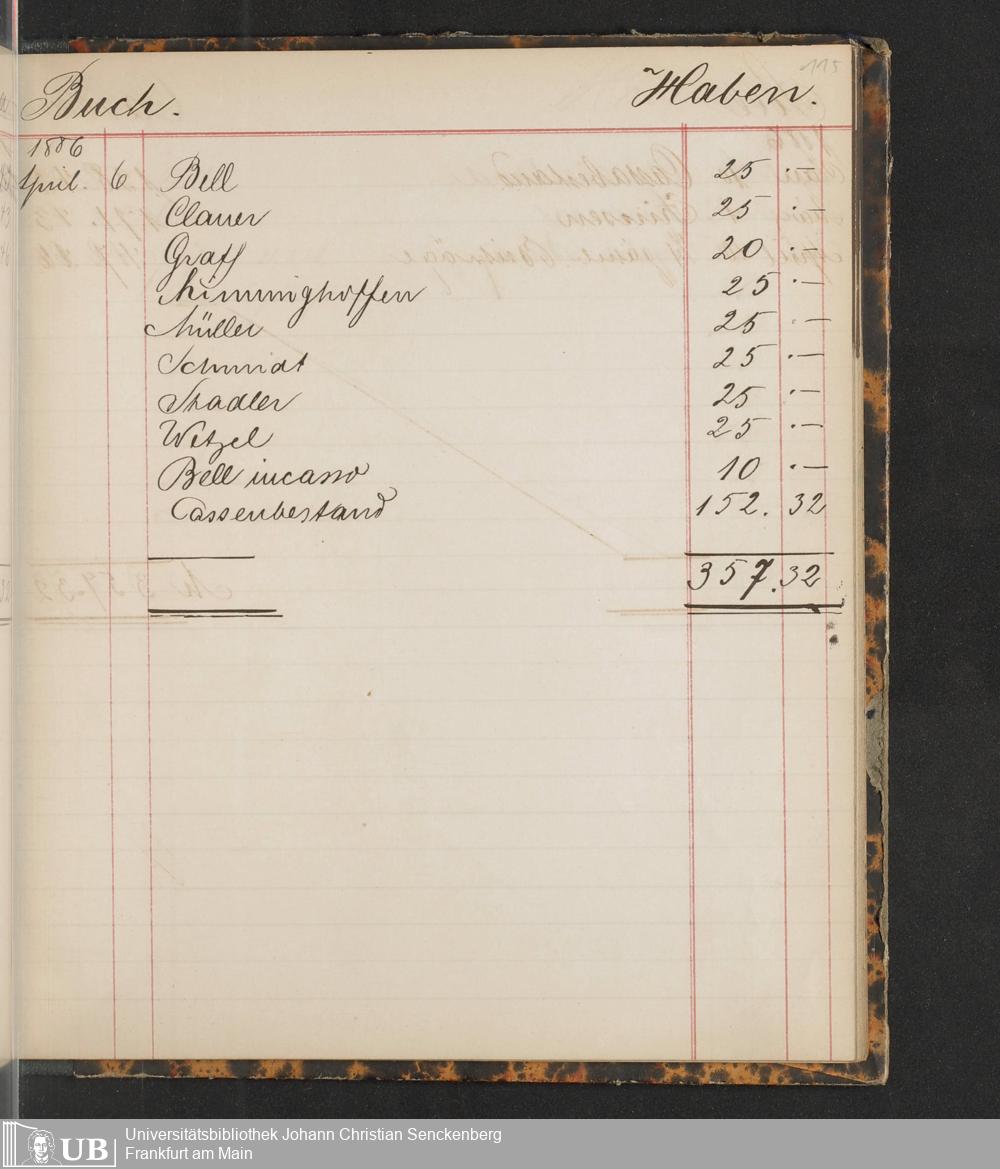 115
Buch. Haben.
1886
April. 6 Bell 25 . —
Clauer 25 . —
Graff 20 . —
Mimminghoffen 25 . —
Müller 25 . —
Schmidt 25 . —
Stadler 25 . —
Wetzel 25 . —
Bell incasso 10 . —
Cassenbestand 152. 32
357. 32
UB Universitätsbibliothek Johann Christian Senckenberg
Frankfurt am Main